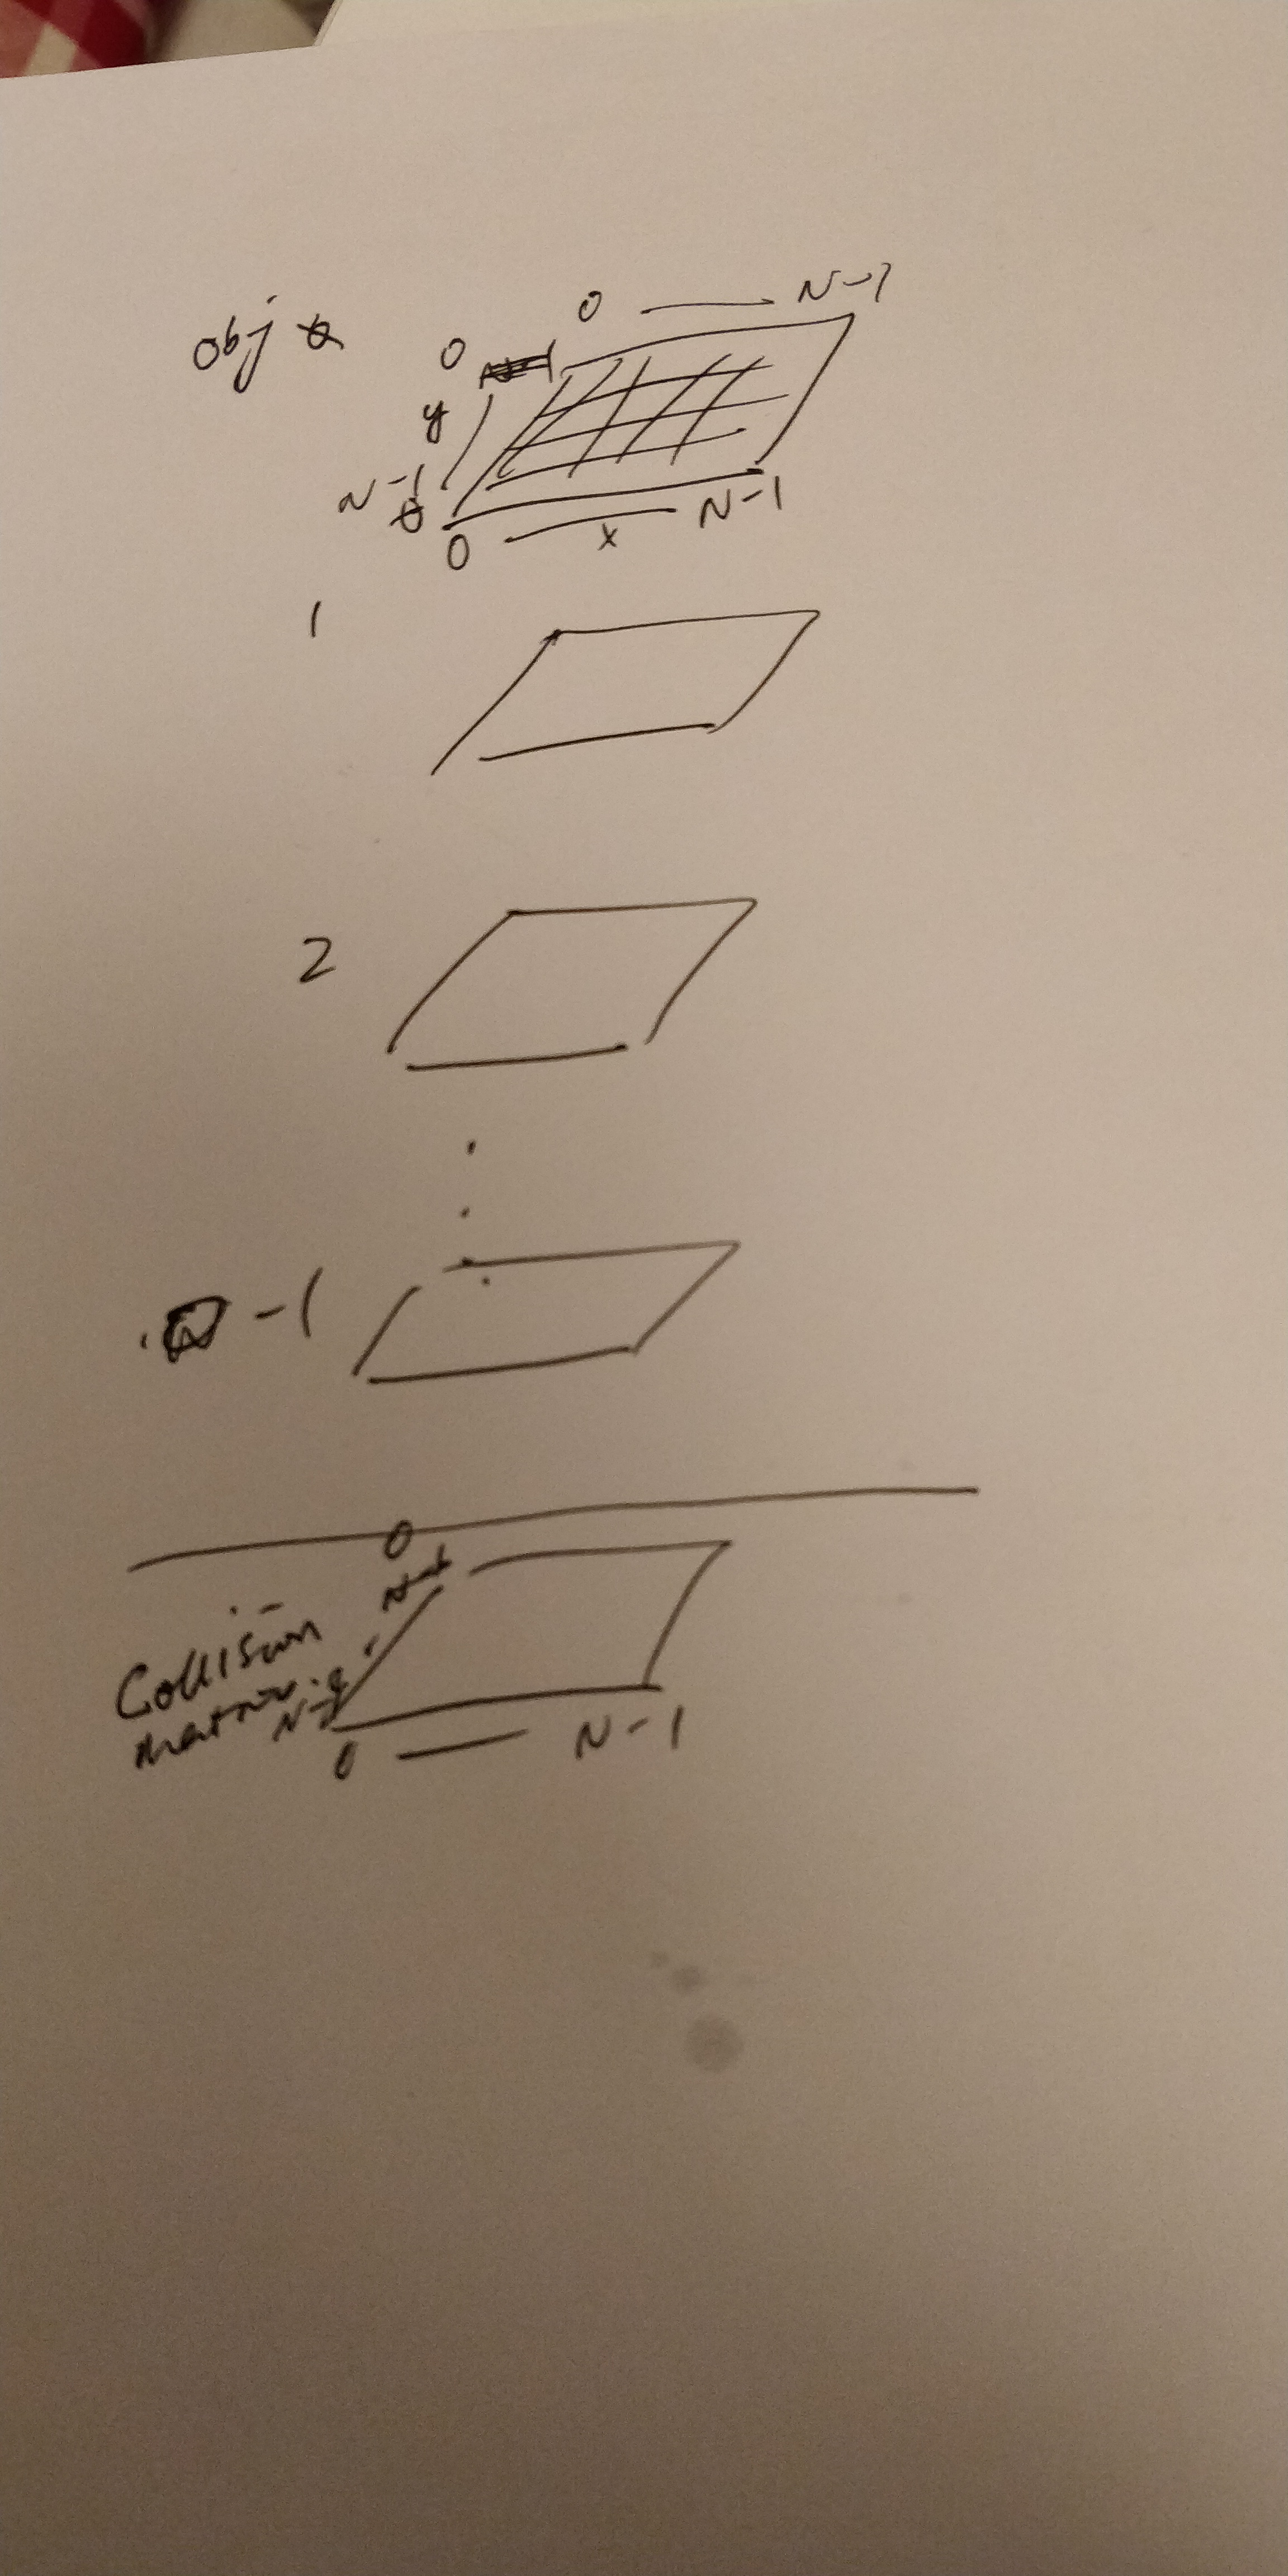 Obj
0 — N-1
0
y
N-1
0 — x N-1
1
2
-1
0
Collision
matrix
0 — N-1